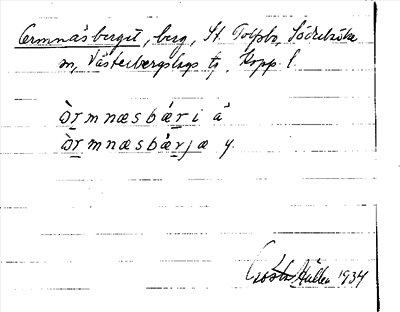 Ormnäsberget, berg, St. Tolpbo, Söderbärke
sn, Västerbergslags ts, Kopp. l.
òrmnæsbæ̀ri ä
òrmnæsbæ̀rjæ y.
Gösta Hallen 1934